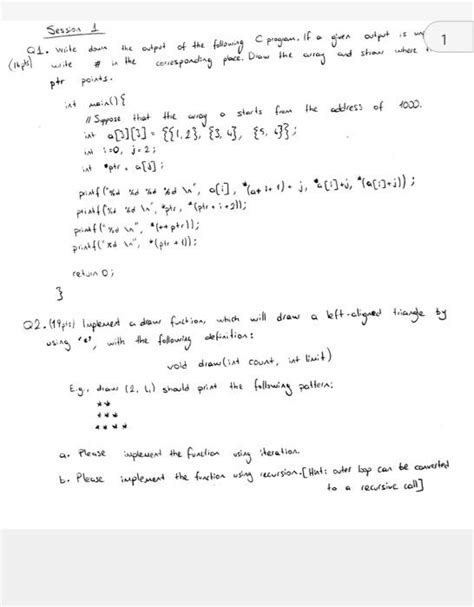 Session 1
Q1. Write down the output of the following C program. If a given output is
(16pts) write # in the corresponding place. Draw the array and show where
ptr points.
int main(){
// Suppose that the array a starts from the address of 1000.
int a[3][2] = {{1,2}, {3,4}, {5,6}};
int i=0, j=2;
int *ptr = a[j];
printf("%d %d %d %d \n", a[i], *(a+i+1)+j, *a[i]+j, *(a[i]+j));
printf("%d %d \n", *ptr, *(ptr+i+2));
printf("%d \n", *(++ptr));
printf("%d \n", *(ptr+1));
return 0;
}
Q2. (19pts) Implement a draw function, which will draw a left-aligned triangle by
using '*', with the following definition:
void draw(int count, int limit)
E.g., draw (2, 4) should print the following pattern:
**
***
****
a. Please implement the function using iteration.
b. Please implement the function using recursion. [Hint: outer loop can be converted
to a recursive call]
1